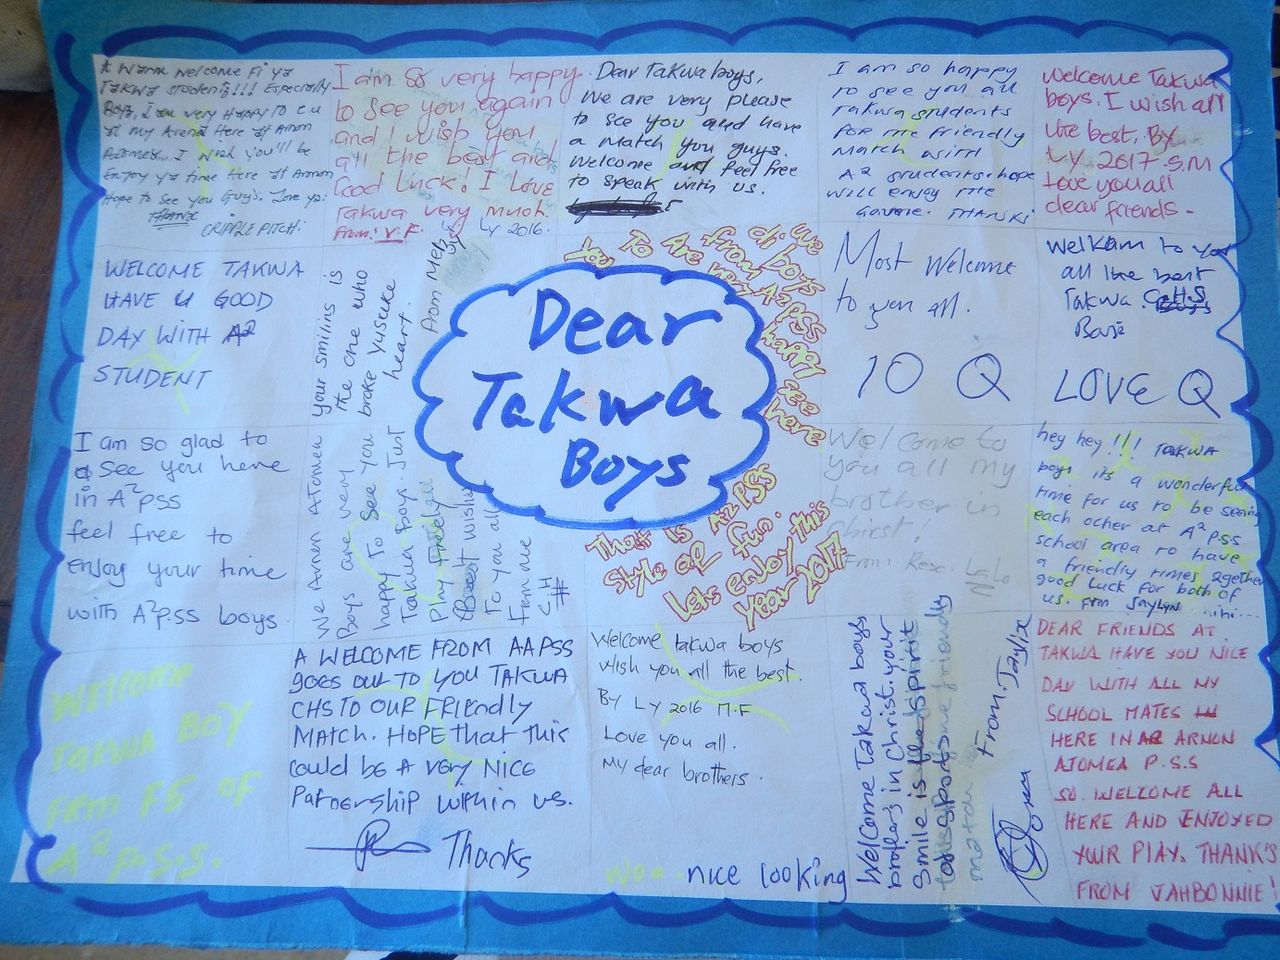 A Warm welcome Fi ya
Takwa students!!! Especially
Boys, I am very Happy To c u
at my Arena Here at Arnon
Atomea... I wish you'll be
Enjoy ya time Here at Arnon
Hope to see you Guys. Love ya:
Thanx
CRIPPLEPITCH:
I am so very happy
to see you again
and I wish you
all the best and
Good Luck! I Love
Takwa very much.
From: V.F. LY 2016.
Dear Takwa boys,
We are very please
to see you and have
a match you guys.
Welcome and feel free
to speak with us.
I am so happy
to see you all
Takwa students
for the friendly
match with
A2 students hope
will enjoy the
Game. THANSKS
Welcome Takwa
boys. I wish all
the best, By
LY 2017 S.M
Love you all
dear friends.
WELCOME TAKWA
HAVE U GOOD
DAY WITH A2
STUDENT
We Arnon Atomea your smiling is
Boys are very the one who
happy To See You brake yusuke
Takwa boys. Just heart.
Play Freely
Best wishes
To you all
From me
CH#
From Mes
Dear
Takwa
Boys
di we
from boys
To Are A2PSS
you very happy
see
here
That is A2 PSS
style of fun.
Lets enjoy this
year 2017
Most Welcome
to you all.
10 Q
Welkam to you
all the best
Takwa CHS
Bois
LOVE Q
I am so glad to
see you here
in A²pss
feel free to
enjoy your time
with A²p.ss boys.
Welcome to
you all my
brother in
Christ!
From: Rex.
hey hey!!! TAKWA
boys its a wonderful
time for us to be seeing
each other at A²P.SS
school area to have
a friendly times 2gether
good luck for both of
us. frm Jaylyn
Wellcome
TAKWA BOY
FRM F5 OF
A² p.s.s.
A WELCOME FROM AAPSS
goes out TO YOU TAKWA
CHS TO OUR FRIENDLY
MATCH. HOPE THAT THIS
could be A very Nice
Partnership within us.
Thanks
Welcome takwa boys
wish you all the best.
By LY 2016 M.F
Love you all.
My dear brothers.
Woo. nice looking
Welcome Takwa boys
brother's in Christ. your
Smile is the Spirit
From. Taylix
DEAR FRIENDS AT
TAKWA HAVE YOU NICE
DAY WITH ALL MY
SCHOOL MATES
HERE IN ARNON
ATOMEA P.S.S
SO. WELCOME ALL
HERE AND ENJOYED
YOUR PLAY. THANK'S
FROM JAHBONNIE!